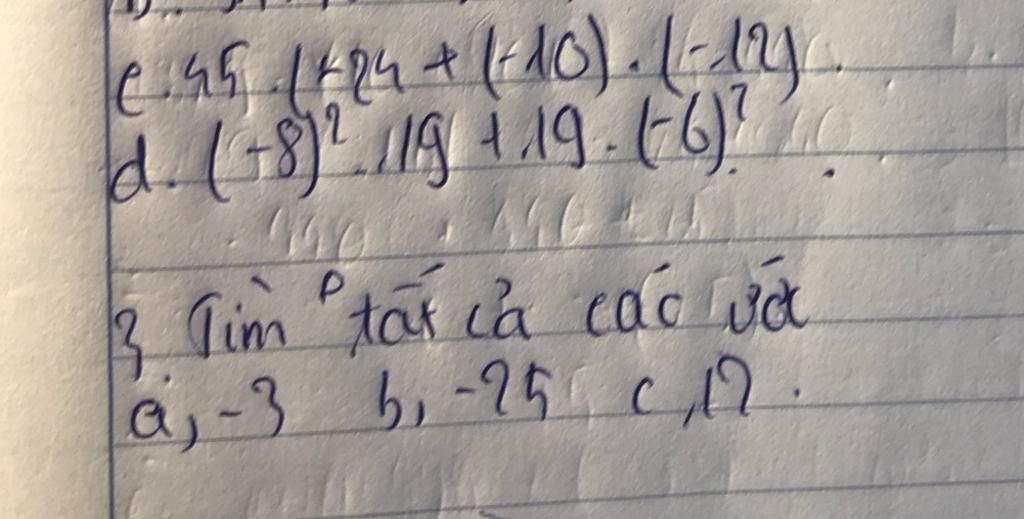 c. 45. (-24 + (-10) . (-12) .
d. (-8)² . 19 + 19 . (-6)² .
3, Tìm tất cả các ước
a, -3 b, -25 c, 12 .